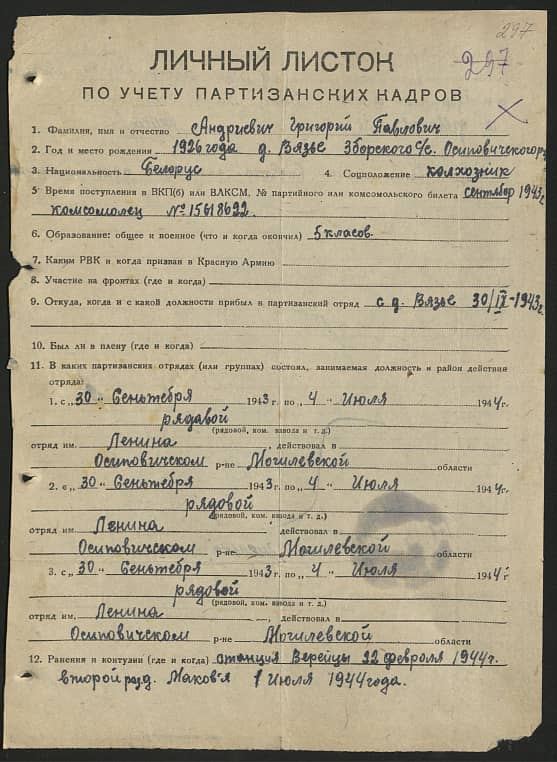 297
297
ЛИЧНЫЙ ЛИСТОК
ПО УЧЕТУ ПАРТИЗАНСКИХ КАДРОВ
1. Фамилия, имя и отчество Андриевич Григорий Павлович
2. Год и место рождения 1926 года д. Вязье Зборского с/с. Осиповичского р.
3. Национальность Белорус 4. Соцположение колхозник
5. Время поступления в ВКП(б) или ВЛКСМ, № партийного или комсомольского билета сентябор 1943 г
комсомолец № 15618692.
6. Образование: общее и военное (что и когда окончил) 5 класов.
7. Каким РВК и когда призван в Красную Армию
8. Участие на фронтах (где и когда)
9. Откуда, когда и с какой должности прибыл в партизанский отряд с д. Вязье 30/IX-1943 г.
10. Был ли в плену (где и когда)
11. В каких партизанских отрядах (или группах) состоял, занимаемая должность и район действия
отряда)
1. с „30" Сеньтебря 1943 г. по „4" Июля 1944 г.
рядавой
(рядовой, ком. взвода и т. д.)
отряд им. Ленина, действовал в
Осиповичском р-не Могилевской области
2. с „30" Сеньтебря 1943 г. по „4" Июля 1944 г.
рядовой
(рядовой, ком. взвода и т. д.)
отряд им. Ленина действовал в
Осиповичском р-не Могилевской области
3. с „30" Сеньтебря 1943 г. по „4" Июля 1944 г
рядовой
(рядовой, ком. взвода и т. д.)
отряд им. Ленина, действовал в
Осиповичском р-не Могилевской области
12. Ранения и контузии (где и когда) станция Верейцы 22 февраля 1944 г.
второй Маков'я 1 Июля 1944 года.